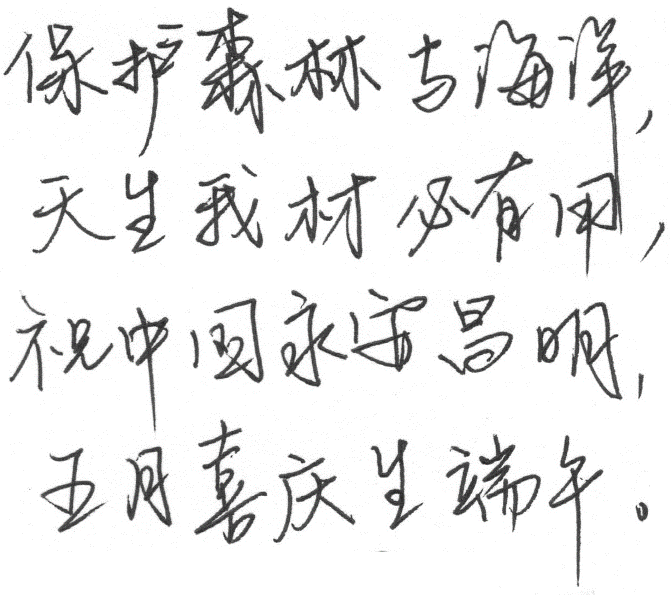 保护森林与海洋，
天生我材必有用，
祝中国永安昌明，
五月喜庆生端午。